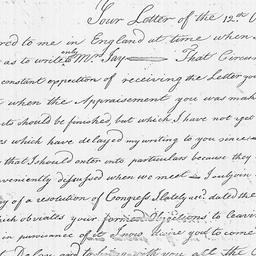 Your Letter of the 12.th
red to me in England at time when
as to write only Mrs Jay — That Circum
constant expection of receiving the Letter you
when the Appraisement you was mak
ts should be finished, but which I have not yet
s which have delayed my writing to you since a
that I should enter into particulars because they
veniently discussed when we meet — I subjoin
y of a resolution of Congress I lately recd. dated the
hich obviates your former Objections to leaving
in pursuance of it I now desire you to come
Delay and with you all the